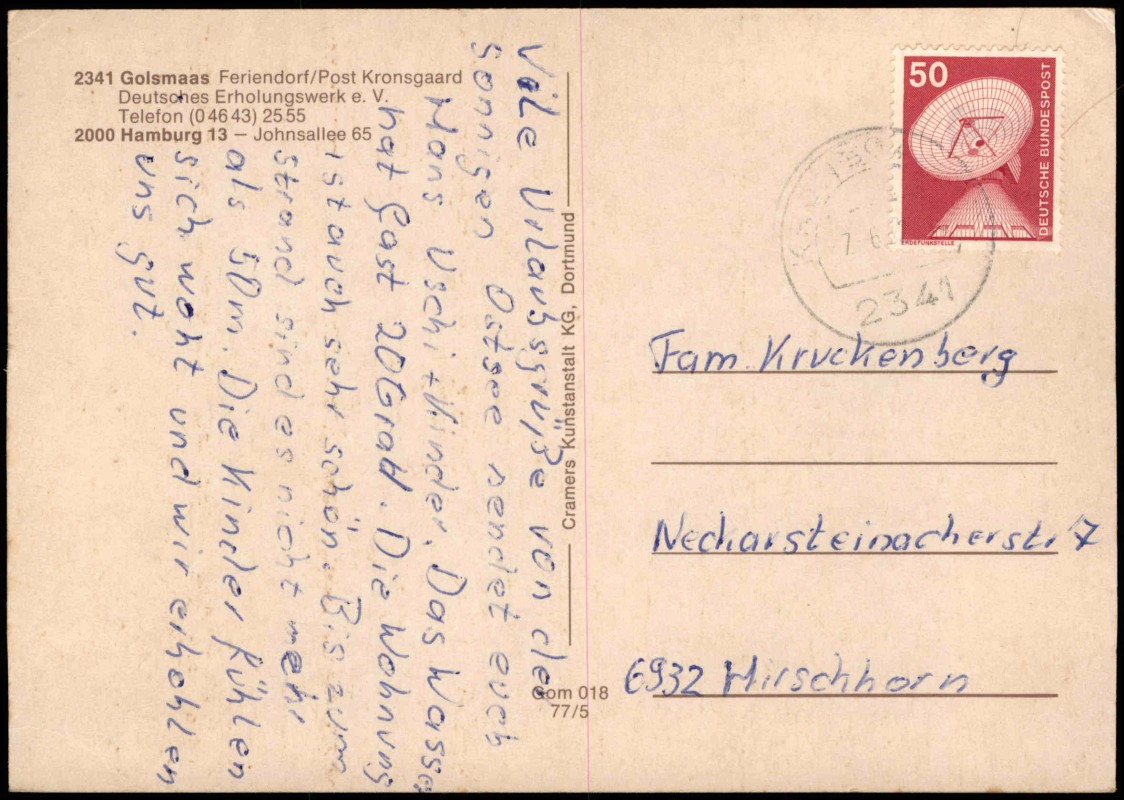 2341 Golsmaas Feriendorf/Post Kronsgaard
Deutsches Erholungswerk e. V.
Telefon (0 46 43) 25 55
2000 Hamburg 13 – Johnsallee 65
Viele Urlaubsgrüße von der
sonnigen Ostsee sendet euch
Hans Uschi + Kinder. Das Wasser
hat fast 20 Grad. Die Wohnung
ist auch sehr schön. Bis zum
Strand sind es nicht mehr
als 50m. Die Kinder fühlen
sich wohl und wir erholen
uns gut.
Cramers Kunstanstalt KG, Dortmund
Gom 018
77/5
50
DEUTSCHE BUNDESPOST
ERDEFUNKSTELLE
2341
Fam. Kruckenberg
Neckarsteinacherstr. 7
6932 Hirschhorn